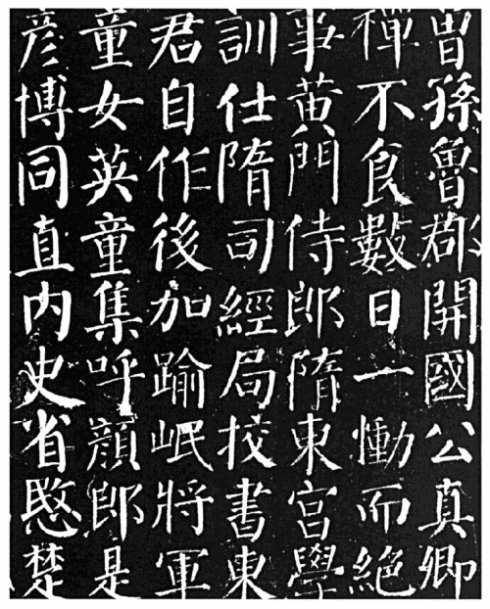 曾孫魯郡開國公真卿
禪不食數日一慟而絕
事黄門侍郎隋東宫學
訓仕隋司經局挍書東
君自作後加踰岷將軍
童女英童集呼顏郎是
彦博同直内史省愍楚